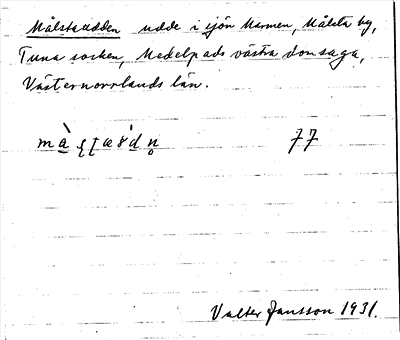 Målstaudden udde i sjön Marmen, Målsta by,
Tuna socken, Medelpads västra domsaga,
Västernorrlands län.
77
Valter Jansson 1931.